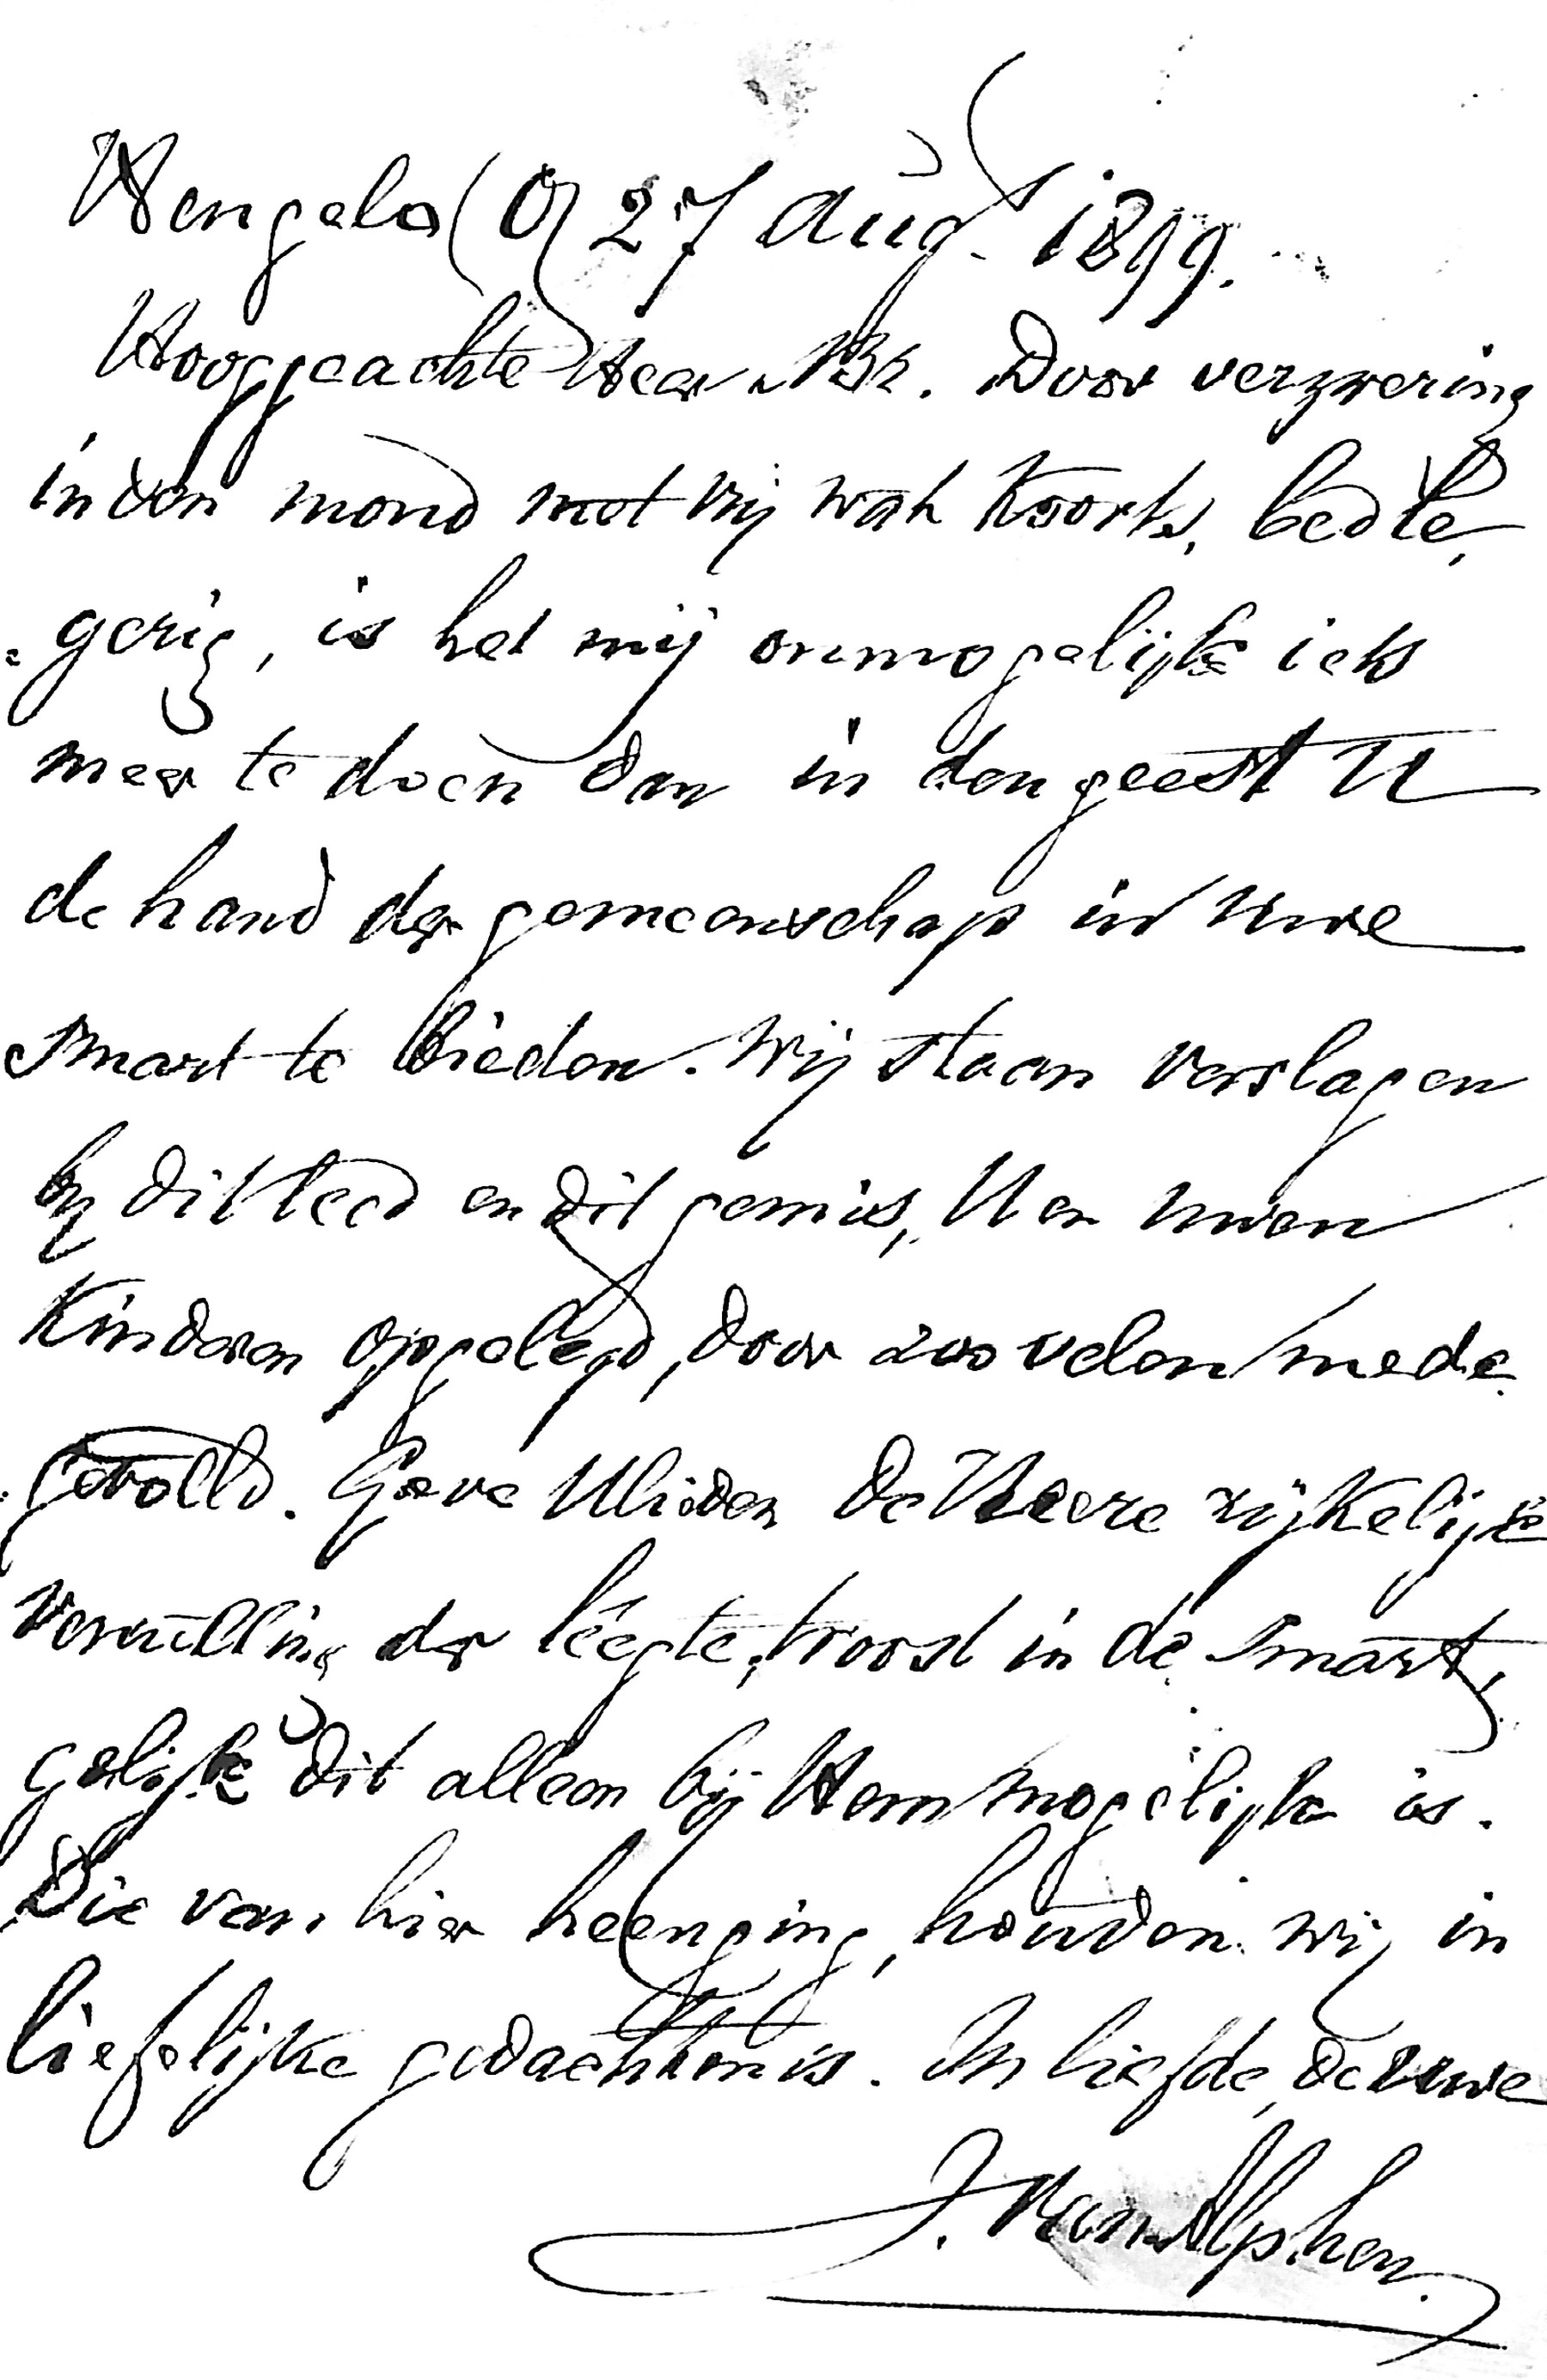 Hengelo (O) 27 Aug. 1899.
Hooggeachte Heer & Br. Door verzwering
in den mond met vrij wat koorts, bedle-
-gerig, is het mij onmogelijk iets
meer te doen dan in den geest U
de hand der gemeenschap in Uwe
smart te bieden. Wij staan verslagen
bij dit leed en dit gemis, U en Uwen
Kinderen opgelegd, door zoo velen mede
gevoeld. Geve Ulieden de Heere rijkelijk
vervulling der leegte, troost in de smart,
gelijk dit alleen bij Hem mogelijk is.
Die van hier heenging, houden wij in
liefelijke gedachtenis. In liefde, de Uwe
J. van Alphen.